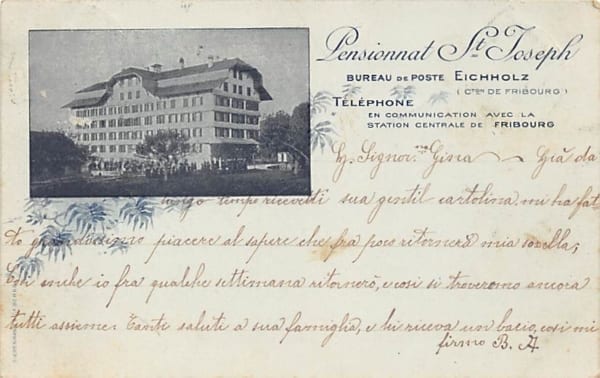 Pensionnat St. Joseph
BUREAU DE POSTE EICHHOLZ
(CTON DE FRIBOURG)
TÉLÉPHONE
EN COMMUNICATION AVEC LA
STATION CENTRALE DE FRIBOURG
G. Signor.na Gina — Già da
lungo tempo ricevetti sua gentil cartolina, mi ha fat-
to piacere al sapere che fra poco ritornerà mia sorella;
anche io fra qualche settimana ritornerò, e così si troveremo ancora
tutti assieme. Tanti saluti a sua famiglia, e lei riceva un bacio, così mi
firmo B. A